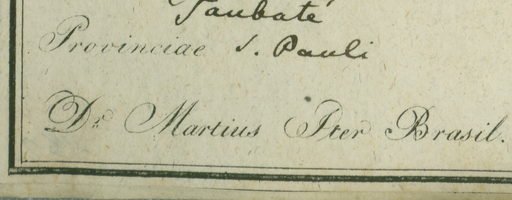 Taubaté
Provinciae S. Pauli
Dr. Martius Iter Brasil.